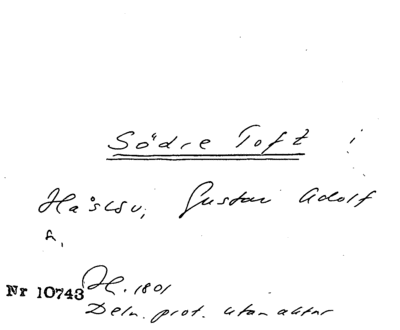 Södre Toft
Gustav Adolf
h.
Nr 10743 H. 1801
Deln. prot. utan aktar